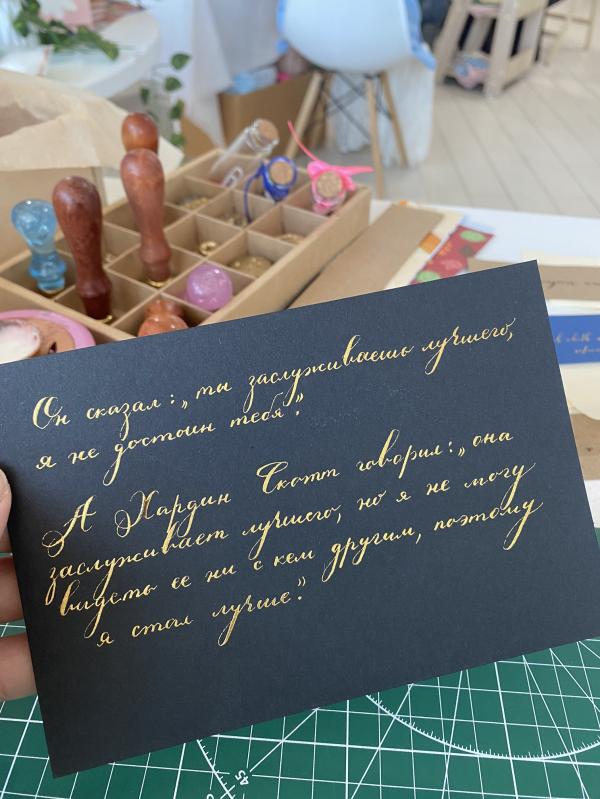 Он сказал: „ты заслуживаешь лучшего,
я не достоин тебя".
А Хардин Скотт говорил: „она
заслуживает лучшего, но я не могу
видеть ее ни с кем другим, поэтому
я стал лучше".
45